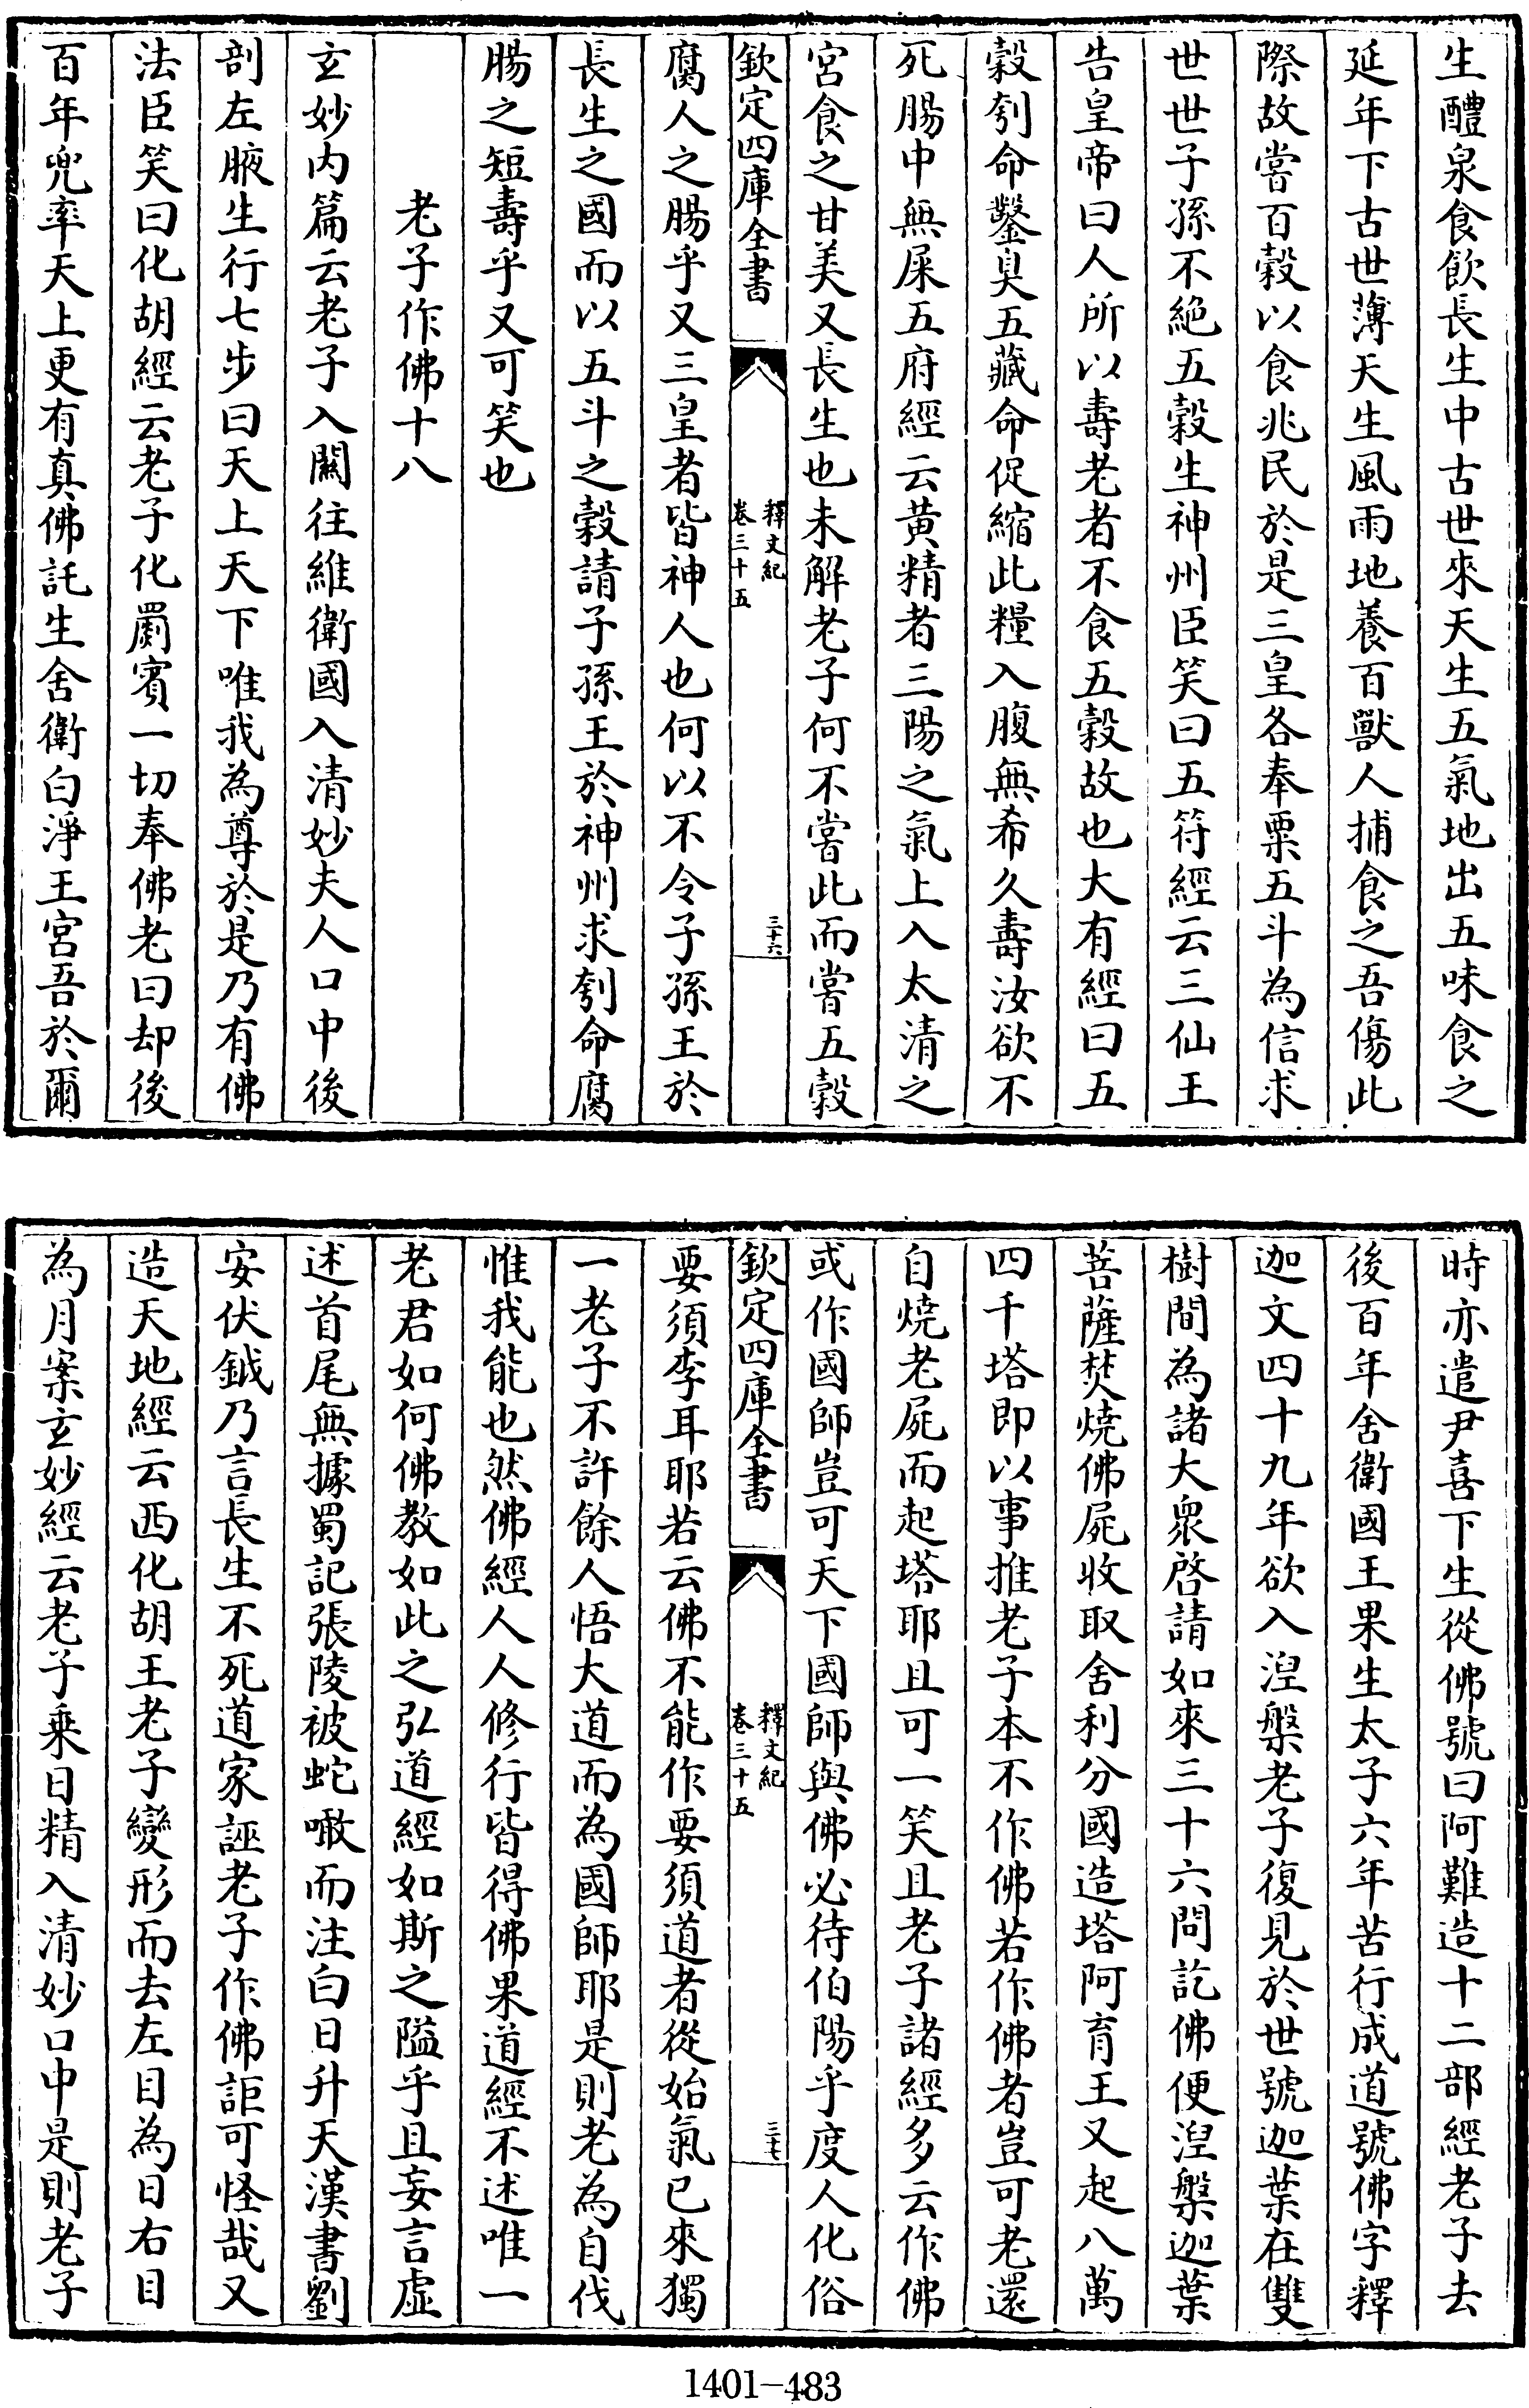 生醴泉食飲長生中古世來天生五氣地出五味食之
延年下古世薄天生風雨地養百獸人捕食之吾傷此
際故嘗百穀以食兆民於是三皇各奉粟五斗為信求
世世子孫不絕五穀生神州臣笑曰五符經云三仙王
告皇帝曰人所以壽老者不食五穀故也大有經曰五
穀刳命鑿臭五藏命促縮此糧入腹無希久壽汝欲不
死腸中無屎五府經云黃精者三陽之氣上入太清之
宮食之甘美又長生也未解老子何不嘗此而嘗五穀
欽定四庫全書
釋文紀
卷三十五
三十六
腐人之腸乎又三皇者皆神人也何以不令子孫王於
長生之國而以五斗之穀請子孫王於神州求刳命腐
腸之短壽乎又可笑也
老子作佛十八
玄妙內篇云老子入關往維衛國入清妙夫人口中後
剖左腋生行七步曰天上天下唯我為尊於是乃有佛
法臣笑曰化胡經云老子化罽賓一切奉佛老曰却後
百年兜率天上更有真佛託生舍衛白淨王宮吾於爾
時亦遣尹喜下生從佛號曰阿難造十二部經老子去
後百年舍衛國王果生太子六年苦行成道號佛字釋
迦文四十九年欲入涅槃老子復見於世號迦葉在雙
樹間為諸大衆啓請如來三十六問訖佛便涅槃迦葉
菩薩焚燒佛屍收取舍利分國造塔阿育王又起八萬
四千塔即以事推老子本不作佛若作佛者豈可老還
自燒老屍而起塔耶且可一笑且老子諸經多云作佛
或作國師豈可天下國師與佛必待伯陽乎度人化俗
欽定四庫全書
釋文紀
卷三十五
三十七
要須李耳耶若云佛不能作要須道者從始氣已來獨
一老子不許餘人悟大道而為國師耶是則老為自伐
惟我能也然佛經人人修行皆得佛果道經不述唯一
老君如何佛教如此之弘道經如斯之隘乎且妄言虛
述首尾無據蜀記張陵被蛇噉而注白日升天漢書劉
安伏鉞乃言長生不死道家誣老子作佛詎可怪哉又
造天地經云西化胡王老子變形而去左目為日右目
為月案玄妙經云老子乘日精入清妙口中是則老子
1401-483